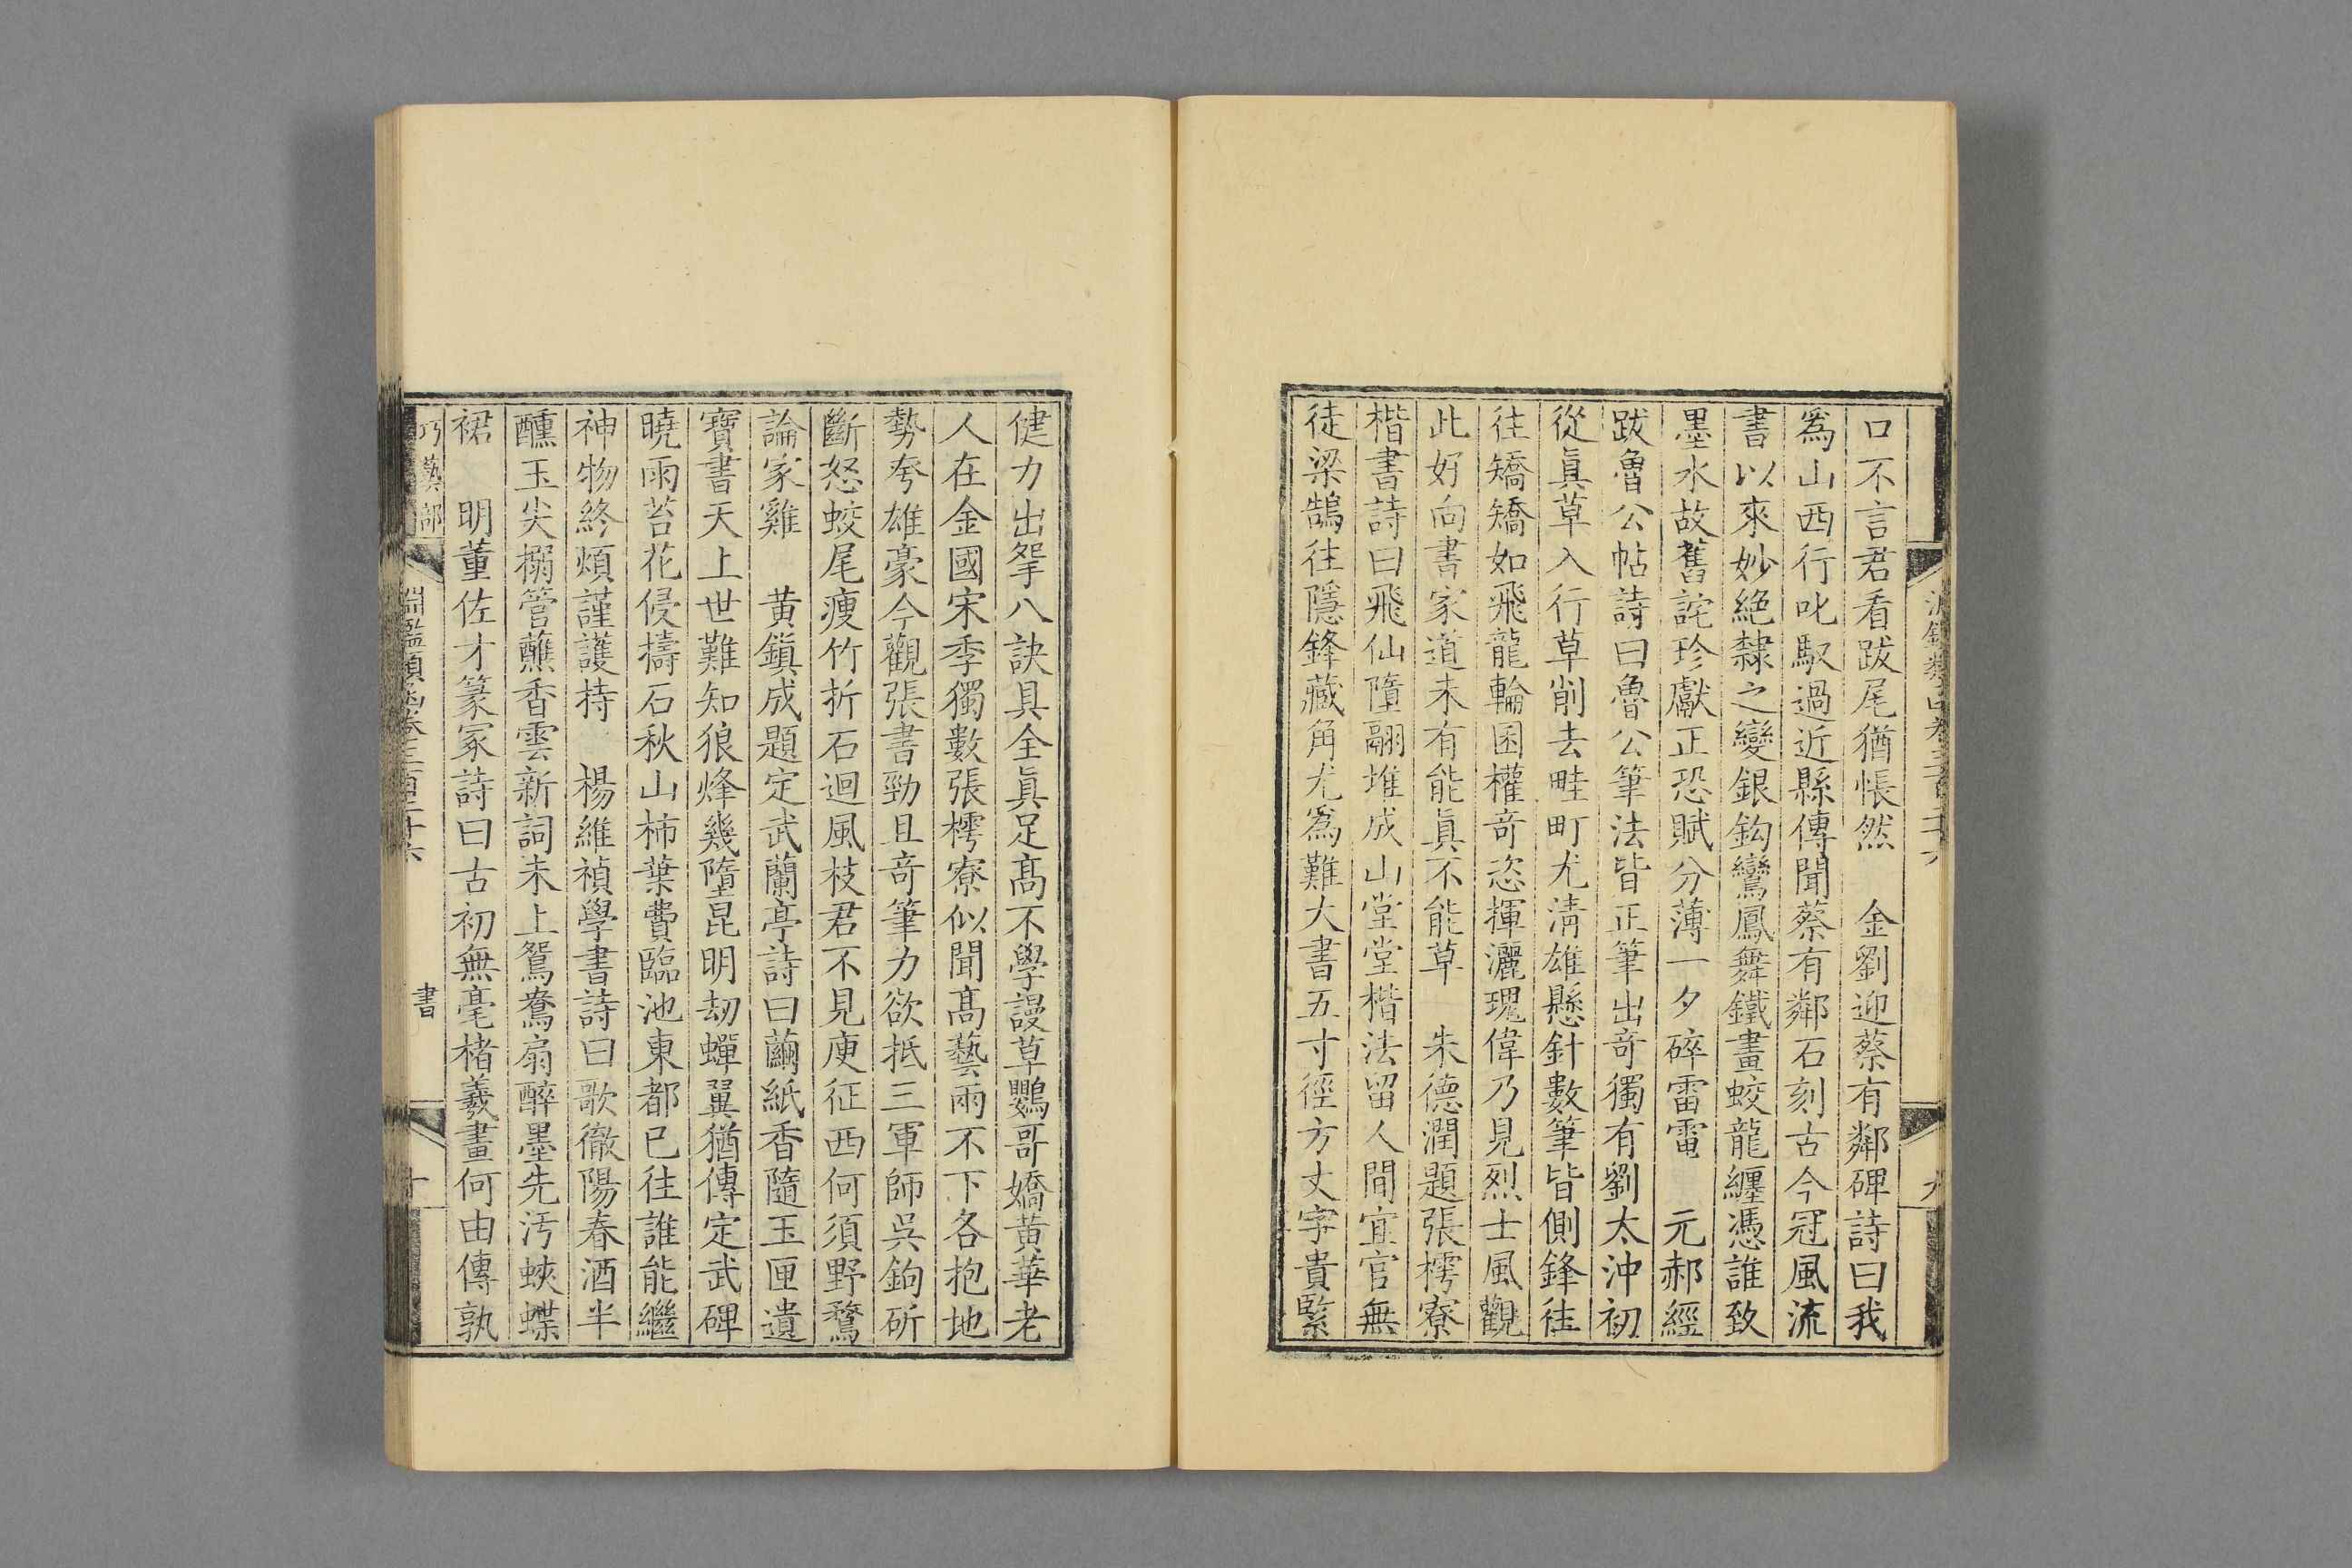 口不言君看跋尾猶悵然　金劉迎蔡有鄰碑詩曰我
爲山西行叱馭過近縣傳聞蔡有鄰石刻古今冠風流
書以來妙絶隸之變銀鈎鸞鳳舞鐵畫蛟龍纒憑誰致
墨水故舊詫珍獻正恐賦分薄一夕碎雷電　元郝經
跋魯公帖詩曰魯公筆法皆正筆出竒獨有劉太沖初
從眞草入行草削去畦町尤淸雄懸針數筆皆側鋒徃
徃矯矯如飛龍輪囷權竒恣揮灑瑰偉乃見烈士風觀
此好向書家道未有能眞不能草　朱德潤題張樗寮
楷書詩曰飛仙隮翮堆成山堂堂楷法留人間宜官無
徒梁鵠徃隱鋒藏角尤爲難大書五寸徑方丈字貴緊
九
健力出揫八訣具全眞足髙不學謾草鸚哥嬌黄華老
人在金國宋季獨數張樗寮似聞髙藝兩不下各抱地
勢夸雄豪今觀張書勁且竒筆力欲抵三軍師吳鉤斫
斷怒蛟尾瘦竹折石迴風枝君不見庾征西何須野鶩
論家雞　黄鎭成題定武蘭亭詩曰繭紙香隨玉匣遺
寶書天上世難知狼烽幾墮昆明刼蟬翼猶傳定武碑
曉雨苔花侵擣石秋山柿葉費臨池東都已往誰能繼
神物終煩謹護持　楊維禎學書詩曰歌徹陽春酒半
醺玉尖搦管蘸香雲新詞未上鴛鴦扇醉墨先汚蛺蝶
裙　明董佐才篆冢詩曰古初無毫楮羲畫何由傳孰
巧藝部　淵鑑類函卷三百二十六　書　十